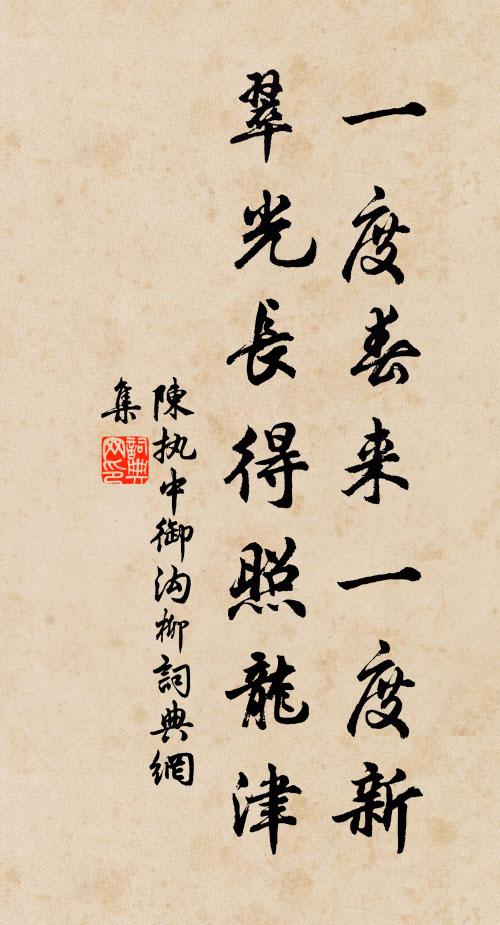 一度春来一度新
翠光長得照龍津
陳执中御沟柳詞典網
集
詞典
网印